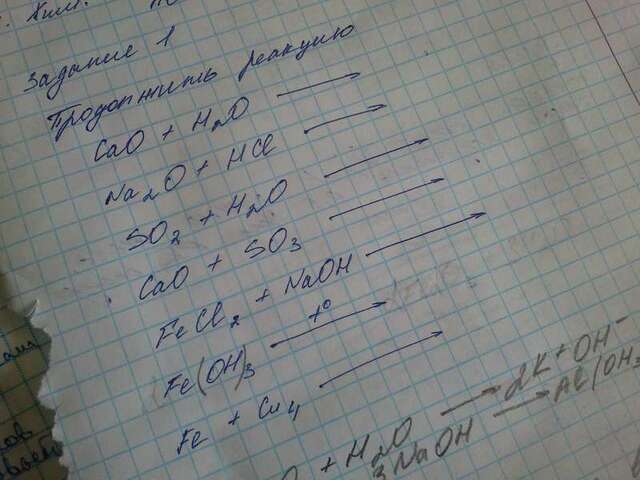 . Хим.
Задание 1
Продолжить реакцию
CaO + H₂O →
Na₂O + HCl →
SO₂ + H₂O →
CaO + SO₃ →
FeCl₂ + NaOH →
Fe(OH)₃ t° →
Fe + →
+ H₂O → 2K⁺ OH⁻
3NaOH → Al(OH)₃